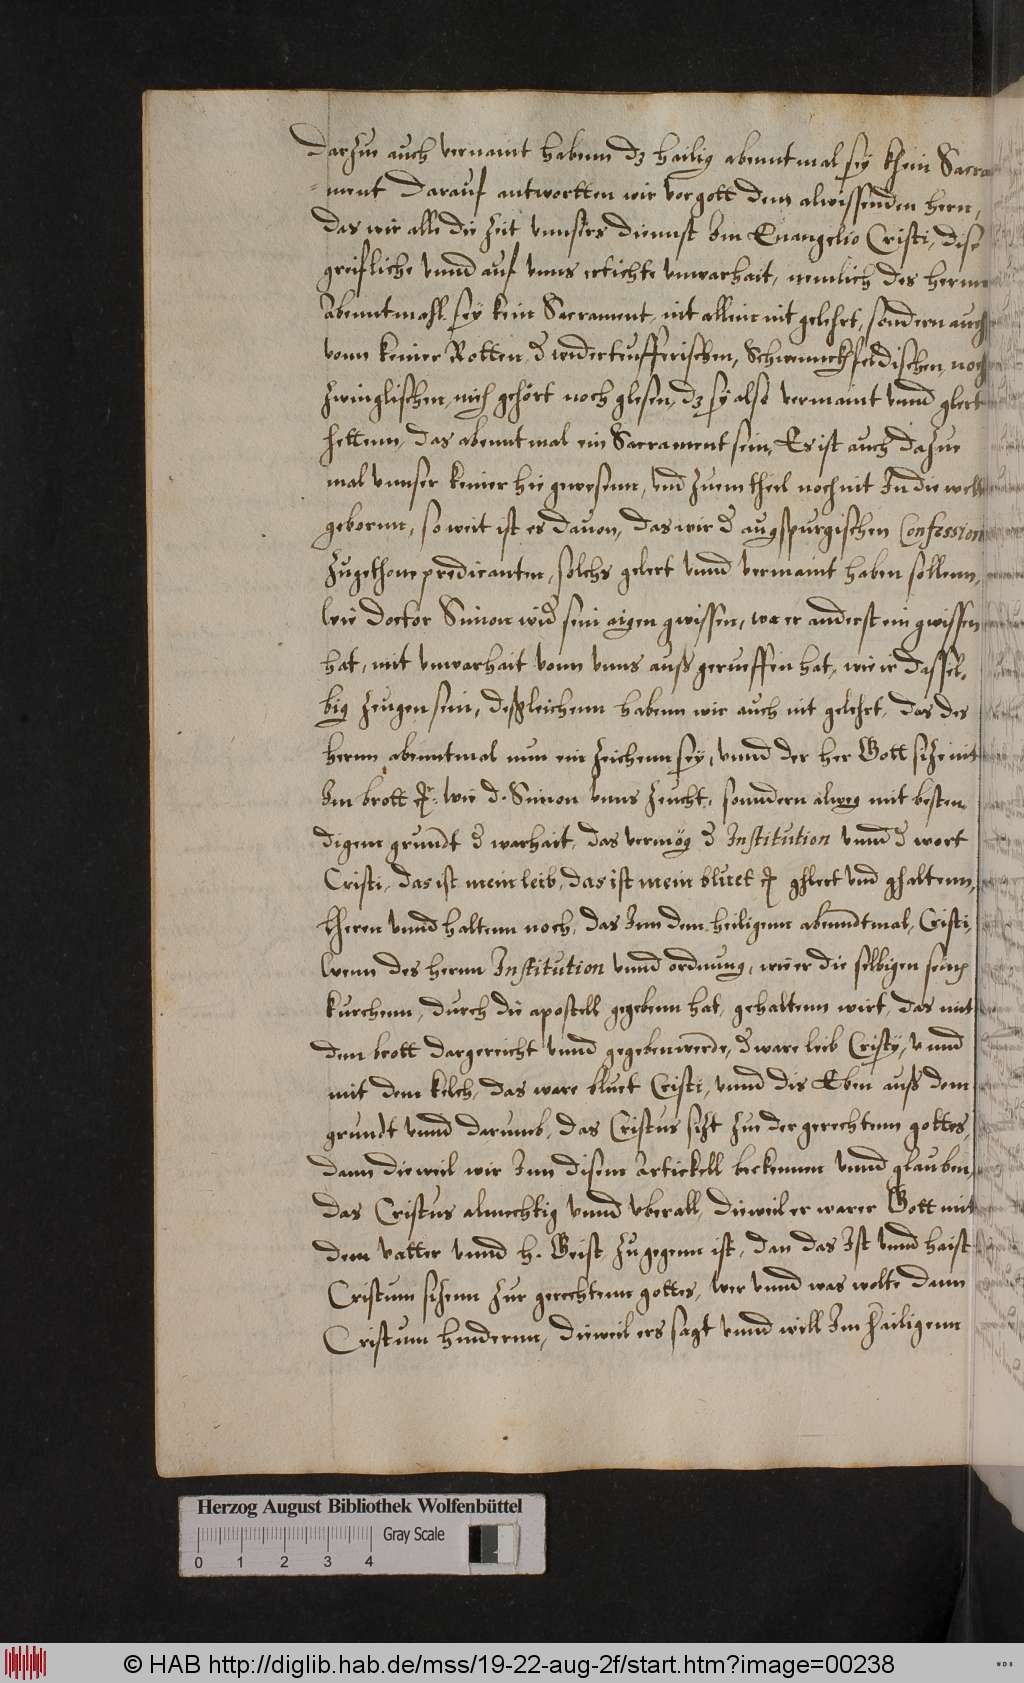 darzue auch vernaint habenn dz hailig abenntmal sey khein Sacra
ment darauf antwortten wir vor gott dem alwissenden hern,
das wir alle die Zeit vnnsers diennst Im Euangelio Cristi, dise
greifliche vnnd auf vnns ertichte vnwarhait, nemlich des herrnn
Abenntmahl sey kein Sacrament, nit allein nit gelehrt, sondern auch
vonn keiner Rotten, d widerteufferischen, Schwennckhfeldischen, noch
Zwinglischen, nich gehört noch glesen, dz sy alse vermaint vnnd glert
hettenn, das abenntmal ein Sacrament sein, Es ist auch dazue
mal vnnser keiner hie gewesenn, vnd Zuem theil noch nit In die welt
gebornn, so weit ist es dauon, das wir d augspurgischen Confession
Zugethone predicanten, solchs gelert vnnd vermaint haben sollenn,
wie Doctor Simon wid sein aigen gwissen, wo er anderst ein gwissen
hat, mit vnwarhait vonn vnns auß gerueffen hat, wie ir dassel,
big Zeugen sein, deßgleichenn habenn wir auch nit gelehrt, das des
herrnn abenntmal nun ein Zeichenn sey, vnnd der her Gott size nit
Im brott etc. wie d. Simon vnns Zeucht, sonndern alweg mit besten,
digem grundt d warhait, das vermög d Institution vnnd d wort
Cristi, das ist mein leib, das ist mein bluet etc glert vnd ghaltenn,
lheren vnnd haltenn noch, das Inn dem heiligenn abenndtmal, Cristi,
wenn des herrnn Institution vnnd ordnung, wie er die selbigen seiner
kurchenn, durch die apostell gegebenn hat, gehaltenn wirt, das mit
dem brott dargereicht vnnd gegeben werde, d ware leib Cristy, vnnd
mit dem kelch, das ware bluet Cristi, vnnd dis Eben auß dem
grundt vnnd darumb, das Cristus sizt Zu der gerechtenn gottes,
dann dieweil wir Inn disem Artickell bekennen vnnd glauben,
das Cristus almechtig vnnd vberall, dieweil er warer Gott mit
dem vatter vnnd h. Geist Zu gegenn ist, dan das Ist vnnd haist
Cristum sizenn Zur gerechtenn gottes, wer vnnd was wolte dann
Cristum hindernn, dieweil ers sagt vnnd will Im hailigenn
Herzog August Bibliothek Wolfenbüttel
Gray Scale
0 1 2 3 4
© HAB http://diglib.hab.de/mss/19-22-aug-2f/start.htm?image=00238